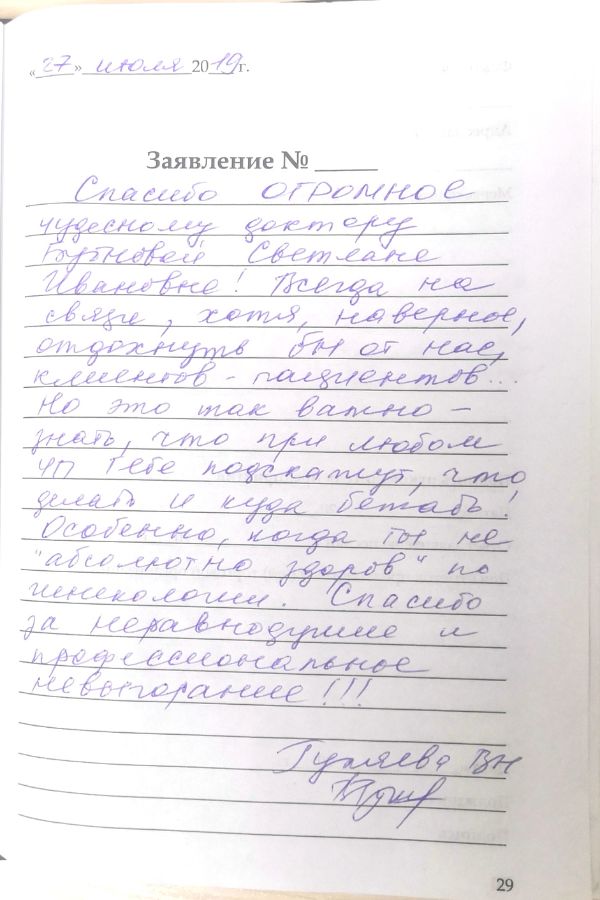 «27» июля 2019г.
Заявление №
Спасибо ОГРОМНОЕ
чудесному доктору
Светлане
Ивановне! Всегда на
связи, хотя, наверное,
отдохнуть бы от нас,
клиентов - пациентов...
Но это так важно –
знать, что при любом
ЧП тебе подскажут, что
делать и куда бежать!
Особенно, когда ты не
"абсолютно здоров" по
гинекологии. Спасибо
за неравнодушие и
профессиональное
невыгорание!!!
ВН
29